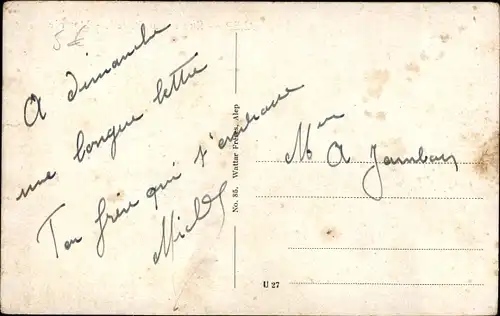 5 €
A dimanche
une longue lettre
Ton frère qui t'embrasse
Michel
No. 85. Wattar Frères, Alep
Mr
A
U 27